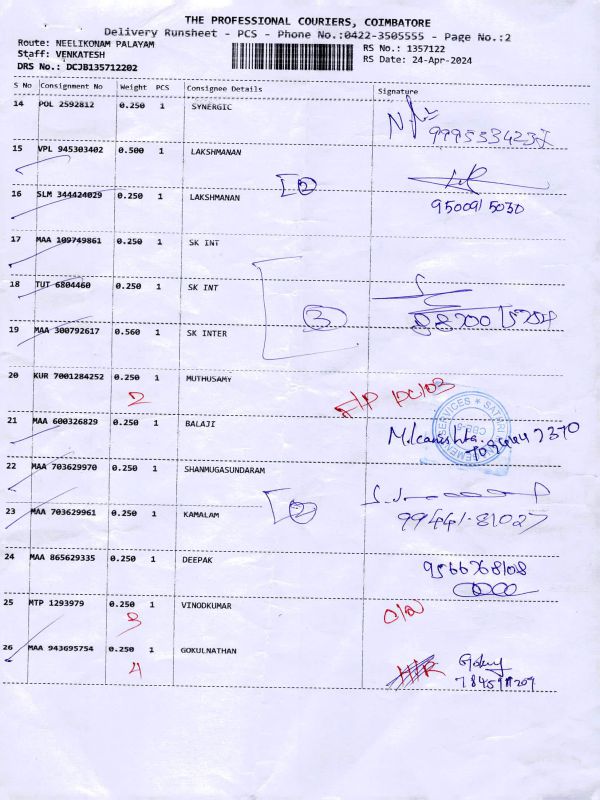 THE PROFESSIONAL COURIERS, COIMBATORE
Delivery Runsheet - PCS - Phone No.:0422-3505555 - Page No.:2
Route: NEELIKONAM PALAYAM
RS No.: 1357122
Staff: VENKATESH
RS Date: 24-Apr-2024
DRS No.: DCJB135712202
S No Consignment No Weight PCS Consignee Details Signature
14 POL 2592812 0.250 1 SYNERGIC
15 VPL 945303402 0.500 1 LAKSHMANAN
2
16 SLM 344424029 0.250 1 LAKSHMANAN
9500915030
17 MAA 109749861 0.250 1 SK INT
18 TUT 6804460 0.250 1 SK INT
3
19 MAA 300792617 0.560 1 SK INTER
20 KUR 7001284252 0.250 1 MUTHUSAMY
2
21 MAA 600326829 0.250 1 BALAJI
22 MAA 703629970 0.250 1 SHANMUGASUNDARAM
2
23 MAA 703629961 0.250 1 KAMALAM
99441-81027
24 MAA 865629335 0.250 1 DEEPAK
9566768108
25 MTP 1293979 0.250 1 VINODKUMAR
3
26 MAA 943695754 0.250 1 GOKULNATHAN
4